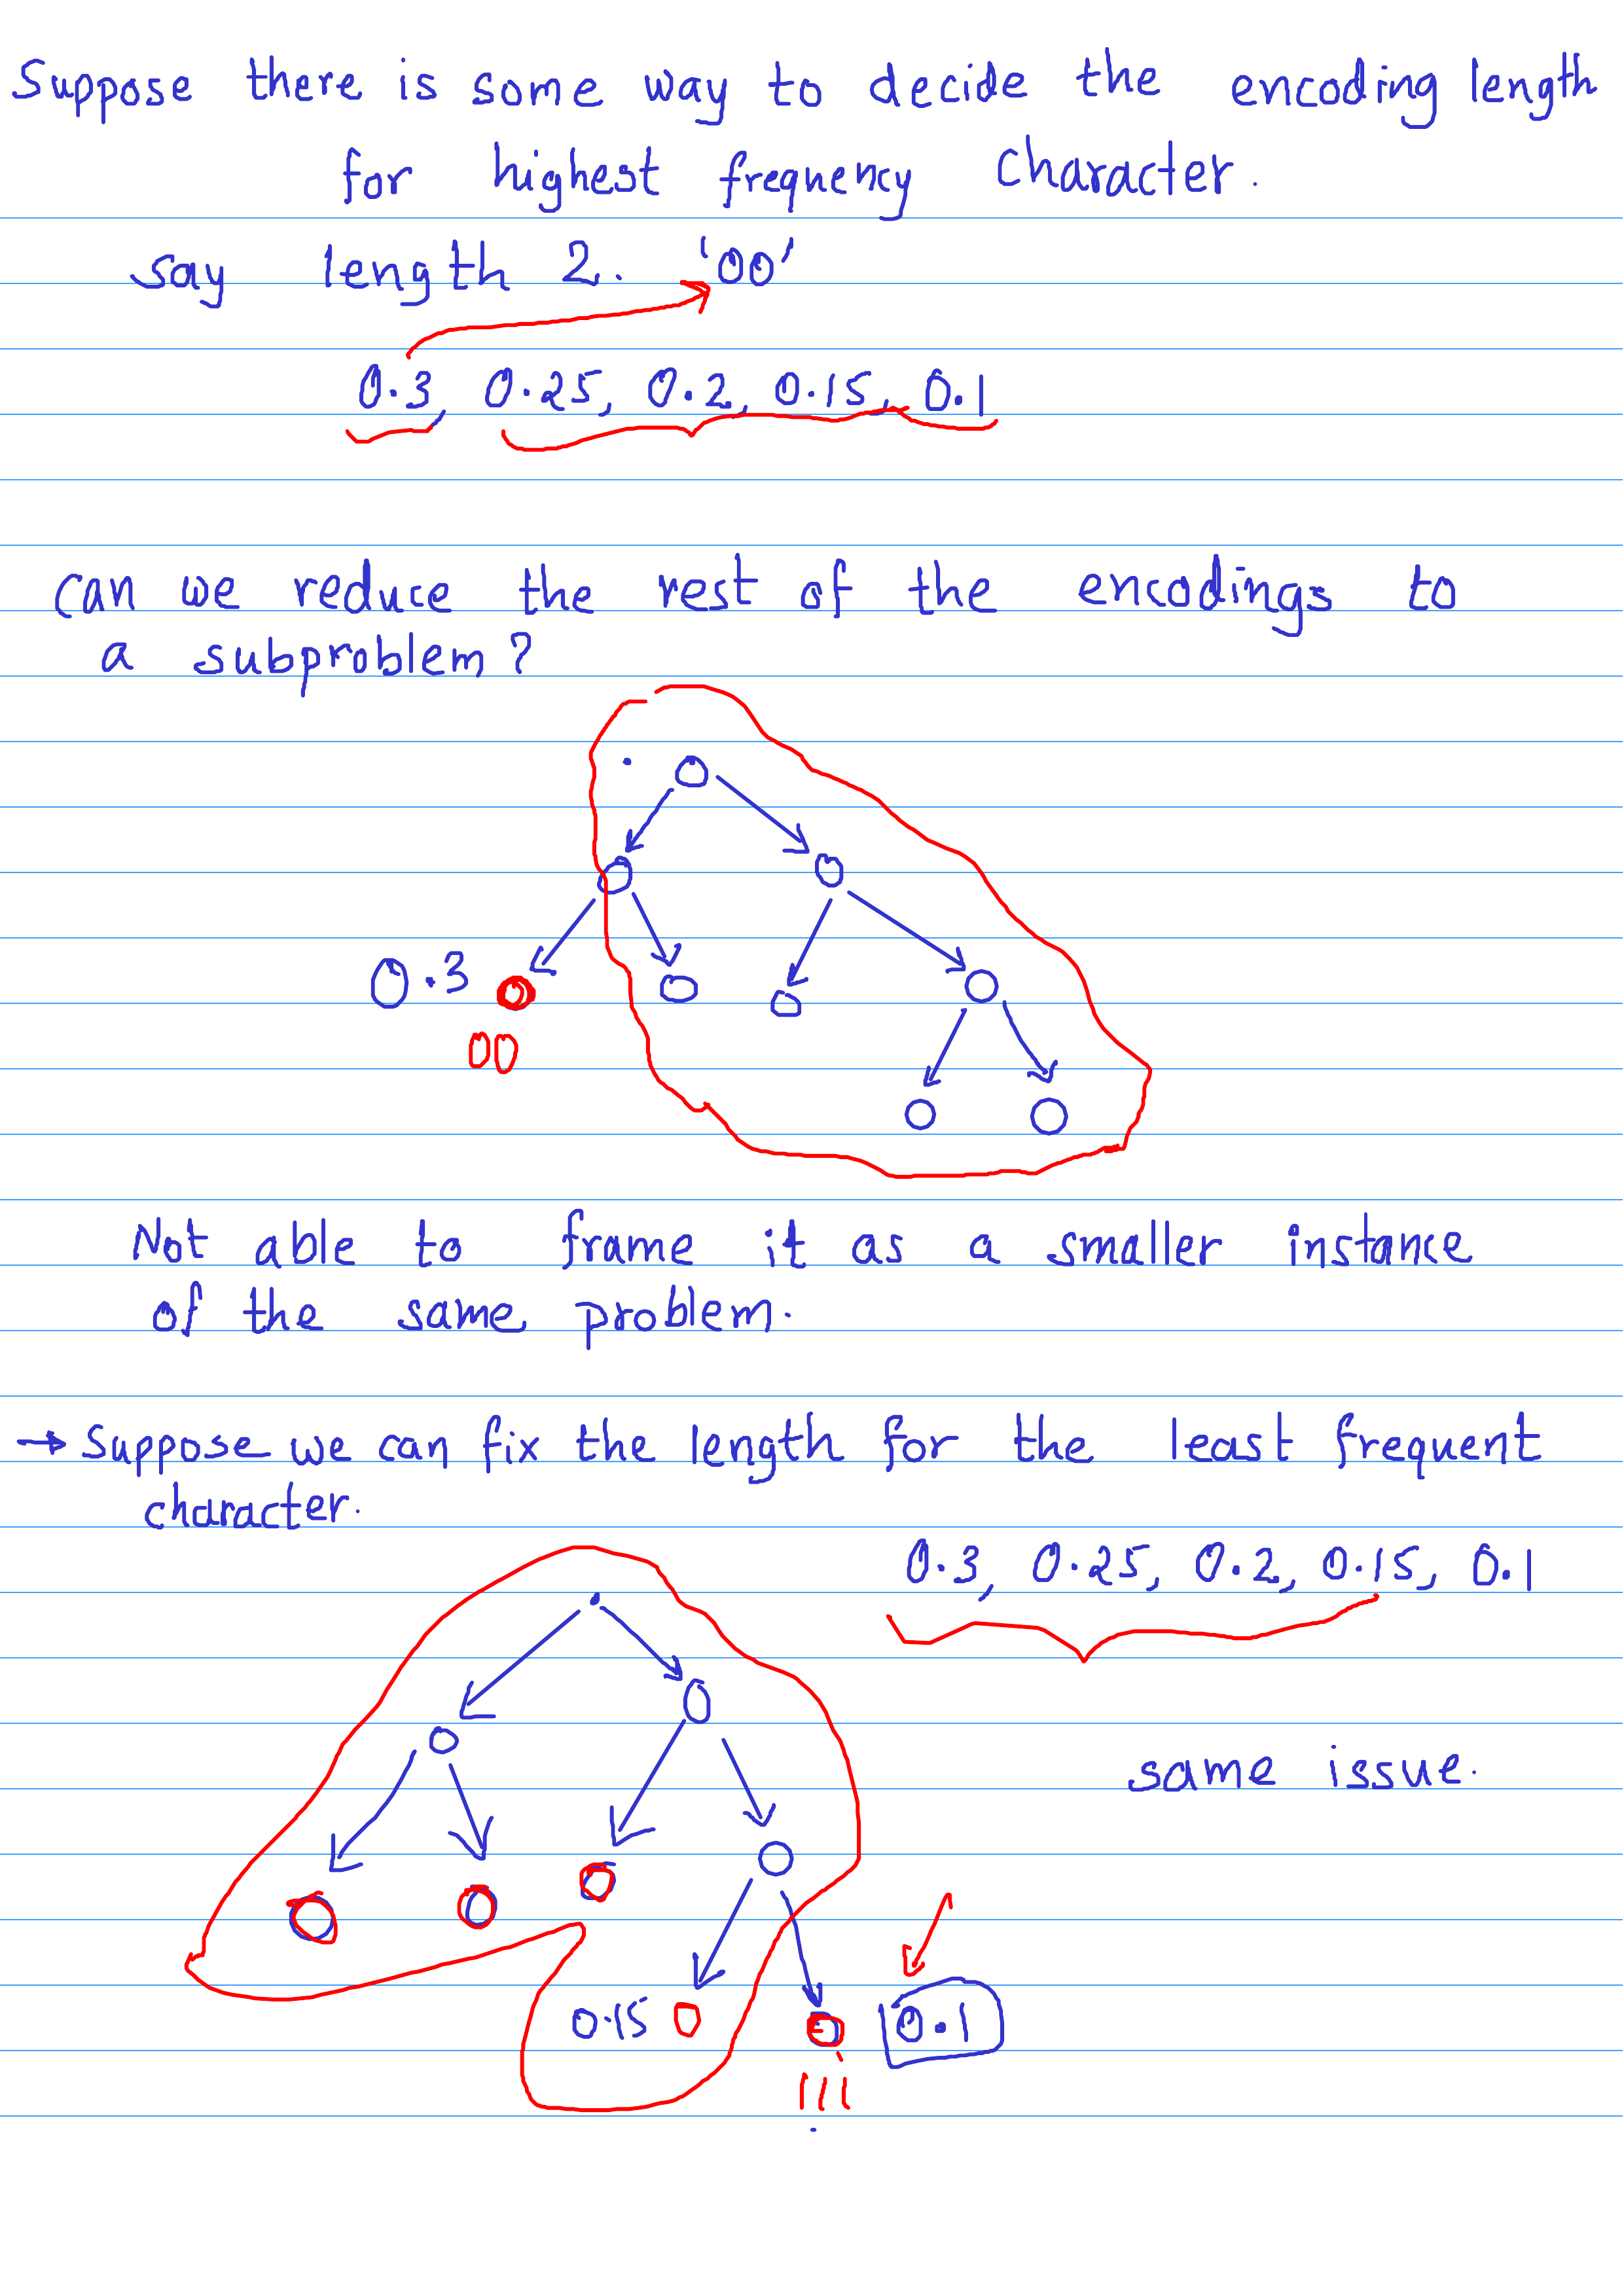 Suppose there is some way to decide the encoding length
for highest frequency character.
say length 2. '00'
0.3, 0.25, 0.2, 0.15, 0.1
Can we reduce the rest of the encodings to
a subproblem?
0.3
00
Not able to frame it as a smaller instance
of the same problem.
→ Suppose we can fix the length for the least frequent
character.
0.3, 0.25, 0.2, 0.15, 0.1
same issue.
0.15 0.1
111